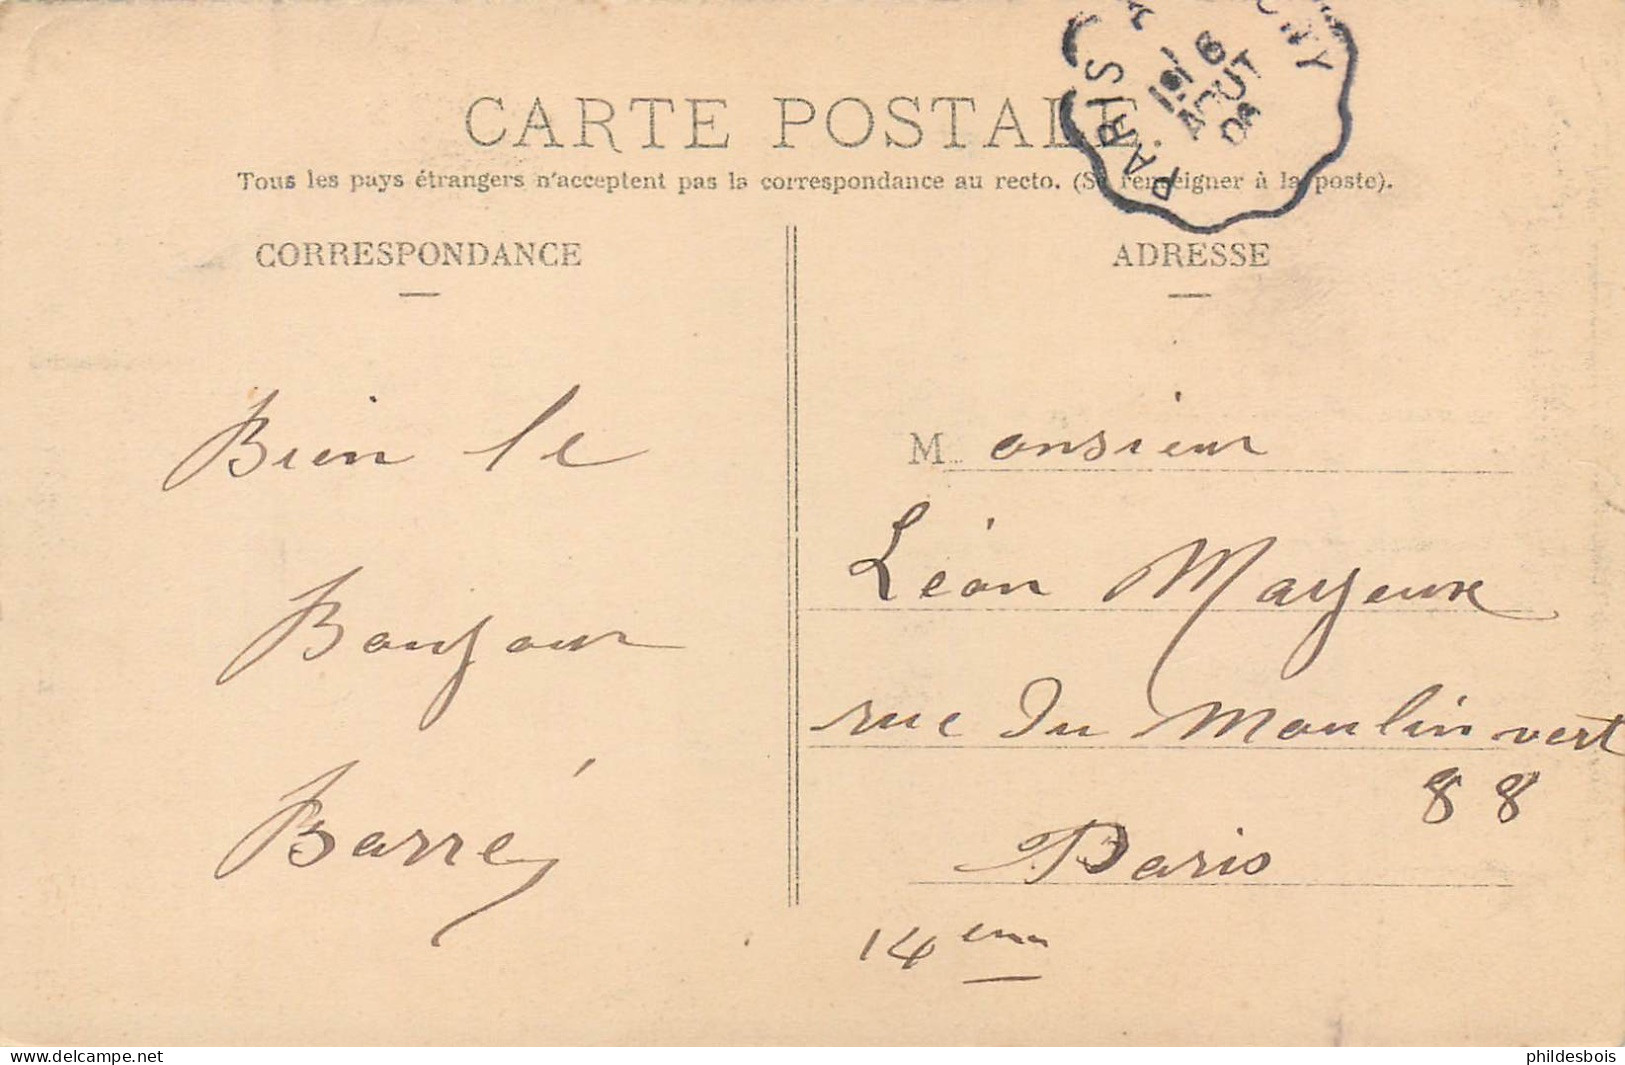 CARTE POSTALE
Tous les pays étrangers n'acceptent pas la correspondance au recto. (Se renseigner à la poste).
CORRESPONDANCE
Bien le
Bonjour
Barré
ADRESSE
Monsieur
Léon Mayeux
rue Du Moulin vert
88
Paris
14 eme
PARIS A
6
AOUT
08
delcampe.net
phildesbois